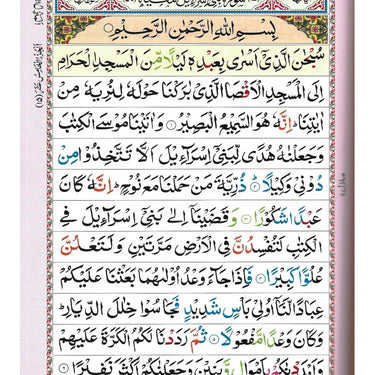 بِسْمِ اللهِ الرَّحْمٰنِ الرَّحِيْمِ
سُبْحٰنَ الَّذِيْۤ اَسْرٰى بِعَبْدِهٖ لَيْلًا مِّنَ الْمَسْجِدِ الْحَرَامِ
اِلَى الْمَسْجِدِ الْاَقْصَا الَّذِيْ بٰرَكْنَا حَوْلَهٗ لِنُرِيَهٗ مِنْ
اٰيٰتِنَا ؕ اِنَّهٗ هُوَ السَّمِيْعُ الْبَصِيْرُ ۝۱ وَاٰتَيْنَا مُوْسَى الْكِتٰبَ
وَجَعَلْنٰهُ هُدًى لِّبَنِيْۤ اِسْرَآءِيْلَ اَلَّا تَتَّخِذُوْا مِنْ
دُوْنِيْ وَكِيْلًا ۝۲ ذُرِّيَّةَ مَنْ حَمَلْنَا مَعَ نُوْحٍ ؕ اِنَّهٗ كَانَ
عَبْدًا شَكُوْرًا ۝۳ وَقَضَيْنَاۤ اِلٰى بَنِيْۤ اِسْرَآءِيْلَ فِى
الْكِتٰبِ لَتُفْسِدُنَّ فِى الْاَرْضِ مَرَّتَيْنِ وَلَتَعْلُنَّ
عُلُوًّا كَبِيْرًا ۝۴ فَاِذَا جَآءَ وَعْدُ اُوْلٰىهُمَا بَعَثْنَا عَلَيْكُمْ
عِبَادًا لَّنَاۤ اُولِيْ بَاْسٍ شَدِيْدٍ فَجَاسُوْا خِلٰلَ الدِّيَارِ ؕ
وَكَانَ وَعْدًا مَّفْعُوْلًا ۝۵ ثُمَّ رَدَدْنَا لَكُمُ الْكَرَّةَ عَلَيْهِمْ
وَاَمْدَدْنٰكُمْ بِاَمْوَالٍ وَّبَنِيْنَ وَجَعَلْنٰكُمْ اَكْثَرَ نَفِيْرًا ۝۶